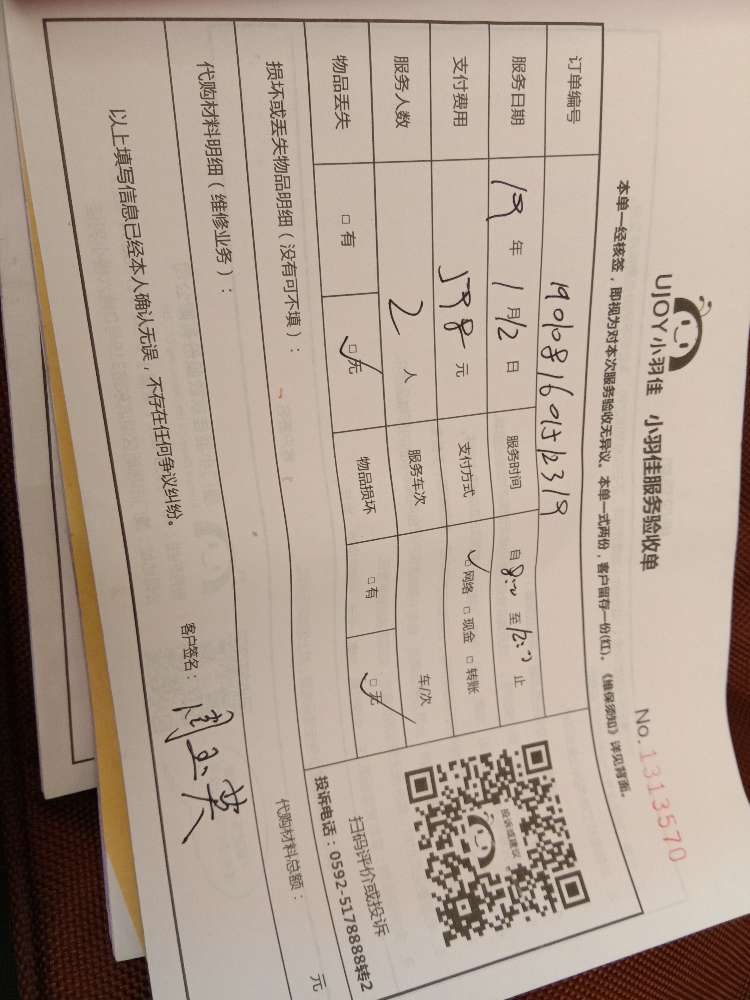 UJOY小羽佳 小羽佳服务验收单
No.1313570
本单一经核签，即视为对本次服务验收无异议。本单一式两份，客户留存一份(红)。《维保须知》详见背面。
订单编号 1901081601512319
服务日期 19 年 1 月 12 日 服务时间 自 8:00 至 12:00 止
支付费用 598 元 支付方式 ☑网络 □现金 □转账
服务人数 2 人 服务车次 车/次
物品丢失 □有 ☑无 物品损坏 □有 ☑无
投诉或建议
扫码评价或投诉
投诉电话：0592-5178888转2
损坏或丢失物品明细（没有可不填）：
代购材料明细（维修业务）： 代购材料总额： 元
以上填写信息已经本人确认无误，不存在任何争议纠纷。 客户签名：周玉英